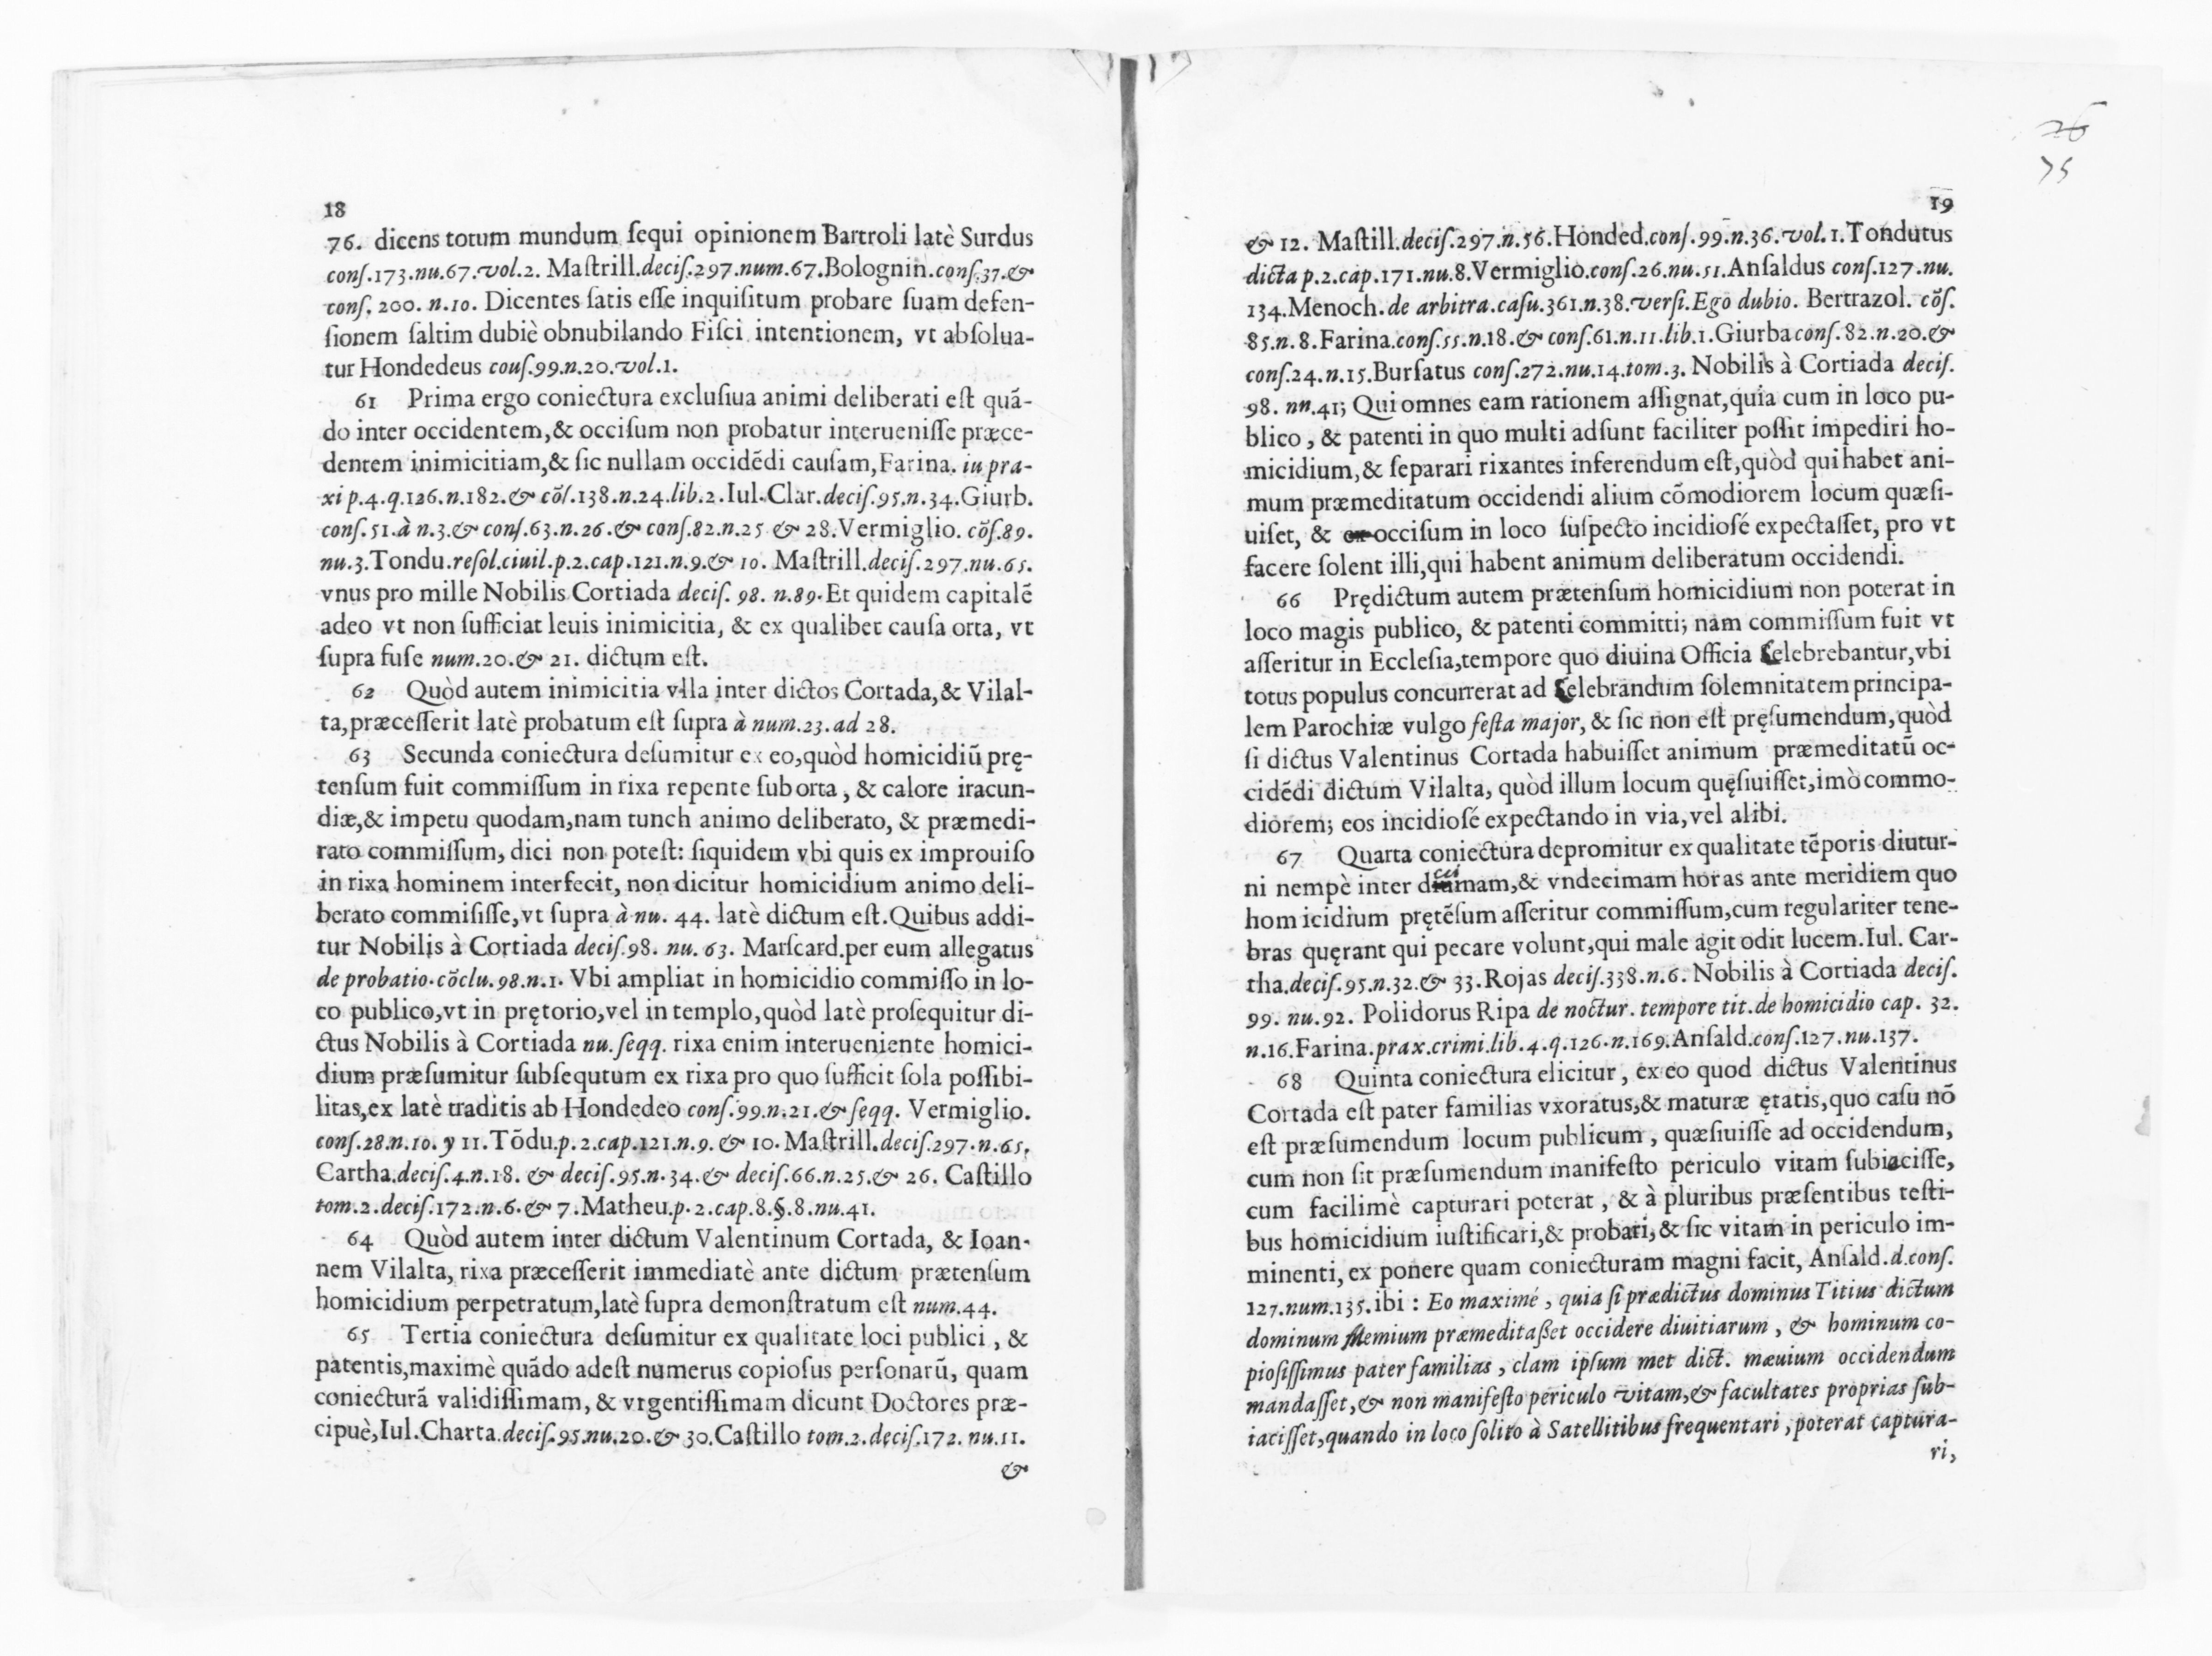 18
76. dicens totum mundum ſequi opinionem Bartroli latè Surdus
conſ.173.nu.67.vol.2. Maſtrill.deciſ.297.num.67.Bolognin.conſ.37.&
conſ. 200. n.10. Dicentes ſatis eſſe inquiſitum probare ſuam defen-
ſionem ſaltim dubiè obnubilando Fiſci intentionem, vt abſolua-
tur Hondedeus couſ.99.n.20.vol.1.
61 Prima ergo coniectura excluſiua animi deliberati eſt quã-
do inter occidentem,& occiſum non probatur interueniſſe præce-
dentem inimicitiam,& ſic nullam occidẽdi cauſam,Farina. iu pra-
xi p.4.q.126.n.182.& cõſ.138.n.24.lib.2.Iul.Clar.deciſ.95.n.34.Giurb.
conſ.51.à n.3.& conſ.63.n.26.& conſ.82.n.25 & 28.Vermiglio. cõſ.89.
nu.3.Tondu.reſol.ciuil.p.2.cap.121.n.9.& 10. Maſtrill.deciſ.297.nu.65.
vnus pro mille Nobilis Cortiada deciſ. 98. n.89.Et quidem capitalẽ
adeo vt non ſufficiat leuis inimicitia, & ex qualibet cauſa orta, vt
ſupra fuſe num.20.& 21. dictum eſt.
62 Quòd autem inimicitia vlla inter dictos Cortada,& Vilal-
ta,præceſſerit latè probatum eſt ſupra à num.23.ad 28.
63 Secunda coniectura deſumitur ex eo,quòd homicidiũ prę-
tenſum fuit commiſſum in rixa repente ſuborta, & calore iracun-
diæ,& impetu quodam,nam tunch animo deliberato, & præmedi-
rato commiſſum, dici non poteſt: ſiquidem vbi quis ex improuiſo
in rixa hominem interfecit, non dicitur homicidium animo deli-
berato commiſiſſe,vt ſupra à nu. 44. latè dictum eſt.Quibus addi-
tur Nobilis à Cortiada deciſ.98. nu. 63. Marſcard.per eum allegatus
de probatio.cõclu.98.n.1. Vbi ampliat in homicidio commiſſo in lo-
co publico,vt in prętorio,vel in templo,quòd latè proſequitur di-
ctus Nobilis à Cortiada nu. ſeqq. rixa enim interueniente homici-
dium præſumitur ſubſequtum ex rixa pro quo ſufficit ſola poſſibi-
litas,ex latè traditis ab Hondedeo conſ.99.n.21.& ſeqq. Vermiglio.
conſ.28.n.10. y 11.Tõdu.p.2.cap.121.n.9. & 10.Maſtrill.deciſ.297.n.65.
Cartha.deciſ.4.n.18. & deciſ.95.n.34.& deciſ.66.n.25.& 26. Caſtillo
tom.2.deciſ.172.n.6.& 7.Matheu.p.2.cap.8.§.8.nu.41.
64 Quòd autem inter dictum Valentinum Cortada, & Ioan-
nem Vilalta, rixa præceſſerit immediatè ante dictum prætenſum
homicidium perpetratum,latè ſupra demonſtratum eſt num.44.
65 Tertia coniectura deſumitur ex qualitate loci publici, &
patentis,maximè quãdo adeſt numerus copioſus perſonarũ, quam
coniecturã validiſſimam, & vrgentiſſimam dicunt Doctores præ-
cipuè,Iul.Charta.deciſ.95.nu.20.& 30.Caſtillo tom.2.deciſ.172. nu.11.
&
26
75
19
& 12. Maſtill.deciſ.297.n.56.Honded.conſ.99.n.36.vol.1.Tondutus
dicta p.2.cap.171.nu.8.Vermiglio.conſ.26.nu.51.Anſaldus conſ.127.nu.
134.Menoch.de arbitra.caſu.361.n.38.verſi.Ego dubio. Bertrazol. cõſ.
85.n.8.Farina.conſ.55.n.18.& conſ.61.n.11.lib.1.Giurba conſ.82.n.20.&
conſ.24.n.15.Burſatus conſ.272.nu.14.tom.3. Nobilis à Cortiada deciſ.
98. nn.41; Qui omnes eam rationem aſſignat,quia cum in loco pu-
blico, & patenti in quo multi adſunt faciliter poſſit impediri ho-
micidium,& ſeparari rixantes inferendum eſt,quòd qui habet ani-
mum præmeditatum occidendi alium cõmodiorem locum quæſi-
uiſet, & occiſum in loco ſuſpecto incidioſé expectaſſet, pro vt
facere ſolent illi,qui habent animum deliberatum occidendi.
66 Prędictum autem prætenſum homicidium non poterat in
loco magis publico, & patenti committi; nam commiſſum fuit vt
aſſeritur in Eccleſia,tempore quo diuina Officia Celebrebantur,vbi
totus populus concurrerat ad Celebrandum ſolemnitatem principa-
lem Parochiæ vulgo feſta major, & ſic non eſt pręſumendum,quòd
ſi dictus Valentinus Cortada habuiſſet animum præmeditatũ oc-
cidẽdi dictum Vilalta, quòd illum locum quęſiuiſſet,imò commo-
diorem; eos incidioſé expectando in via,vel alibi.
67 Quarta coniectura depromitur ex qualitate tẽporis diutur-
ni nempè inter decimam,& vndecimam horas ante meridiem quo
homicidium prętẽſum aſſeritur commiſſum,cum regulariter tene-
bras quęrant qui pecare volunt,qui male agit odit lucem.Iul. Car-
tha.deciſ.95.n.32.& 33.Rojas deciſ.338.n.6. Nobilis à Cortiada deciſ.
99. nu.92. Polidorus Ripa de noctur. tempore tit.de homicidio cap. 32.
n.16.Farina.prax.crimi.lib.4.q.126.n.169.Anſald.conſ.127.nu.137.
68 Quinta coniectura elicitur, ex eo quod dictus Valentinus
Cortada eſt pater familias vxoratus,& maturæ ętatis,quo caſu nõ
eſt præſumendum locum publicum, quæſiuiſſe ad occidendum,
cum non ſit præſumendum manifeſto periculo vitam ſubiaciſſe,
cum facilimè capturari poterat, & à pluribus præſentibus teſti-
bus homicidium iuſtificari,& probari,& ſic vitam in periculo im-
minenti, ex ponere quam coniecturam magni facit, Anſald.d.conſ.
127.num.135.ibi : Eo maximé, quia ſi prædictus dominus Titius dictum
dominum Memium præmeditaßet occidere diuitiarum, & hominum co-
pioſiſſimus pater familias, clam ipſum met dict. mæuium occidendum
mandaſſet,& non manifeſto periculo vitam,& facultates proprias ſub-
iaciſſet,quando in loco ſolito à Satellitibus frequentari, poterat captura-
ri,